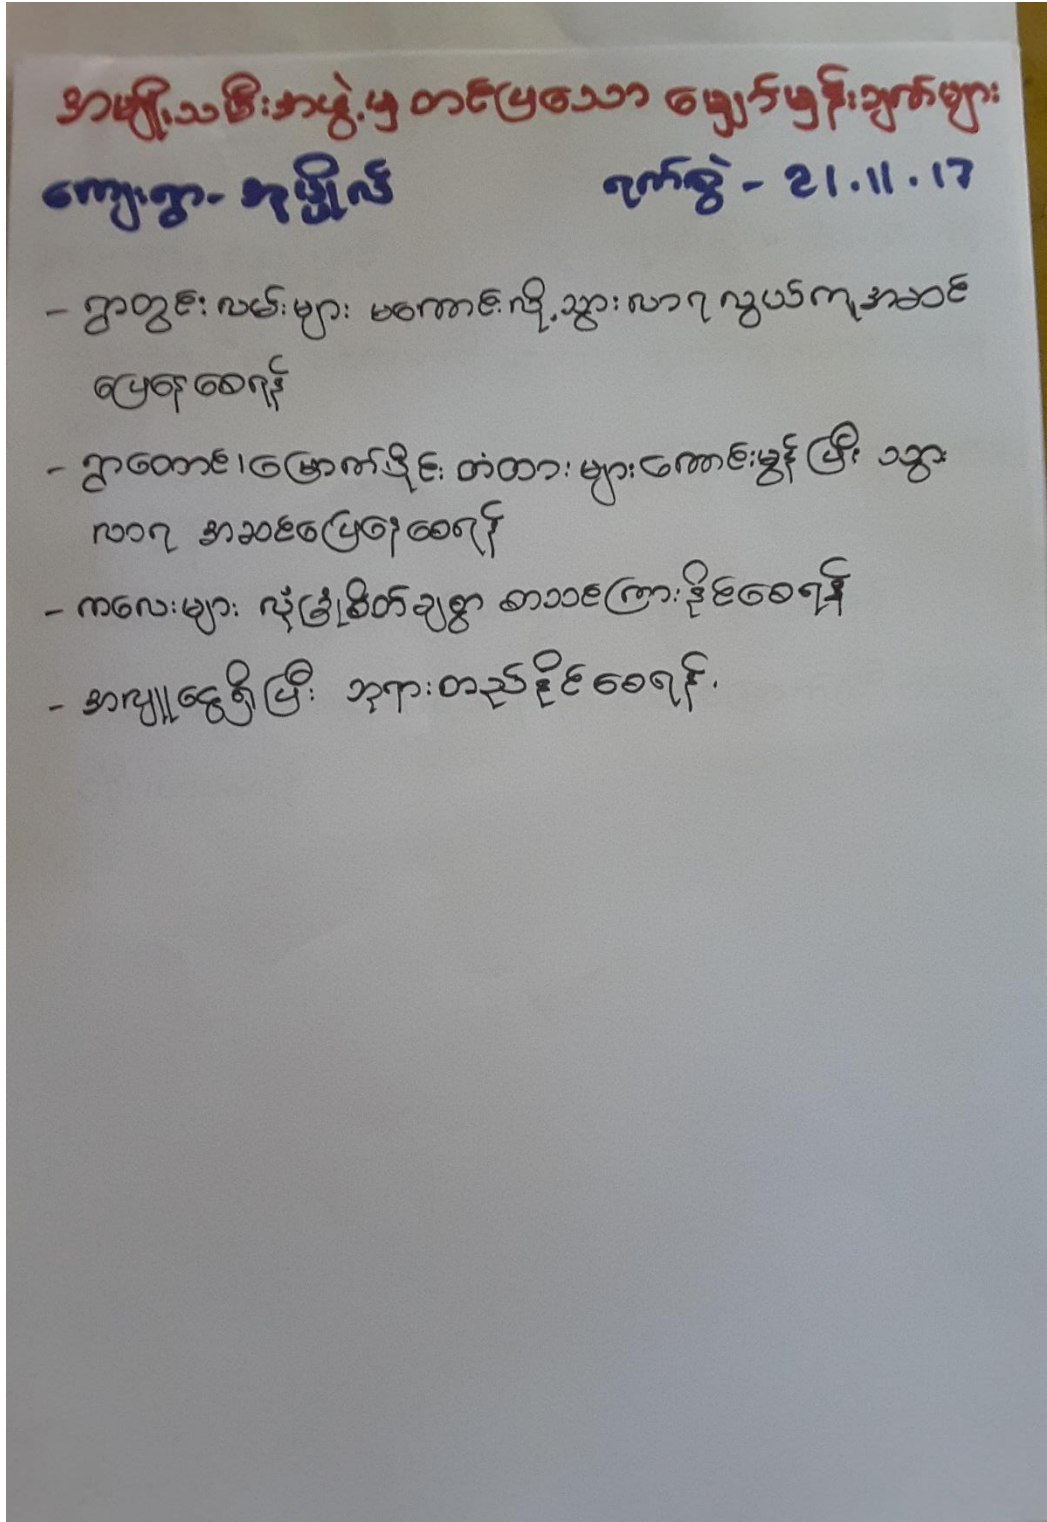 အမျိုးသမီးအဖွဲ့မှ တင်ပြသော မျှော်မှန်းချက်များ
ကျေးရွာ- ရက်စွဲ - 21.11.17
- ရွာတွင်းလမ်းများ မကောင်းလို့ သွားလာရလွယ်ကူအဆင်
ပြေစေရန်
- ရွာတောင်၊မြောက်ပိုင်း တံတားများကောင်းမွန်ပြီး သွား
လာရ အဆင်ပြေစေရန်
- ကလေးများ လုံခြုံစိတ်ချစွာ စာသင်ကြားနိုင်စေရန်
- အလှူငွေရှိပြီး ဘုရားတည်နိုင်စေရန်.